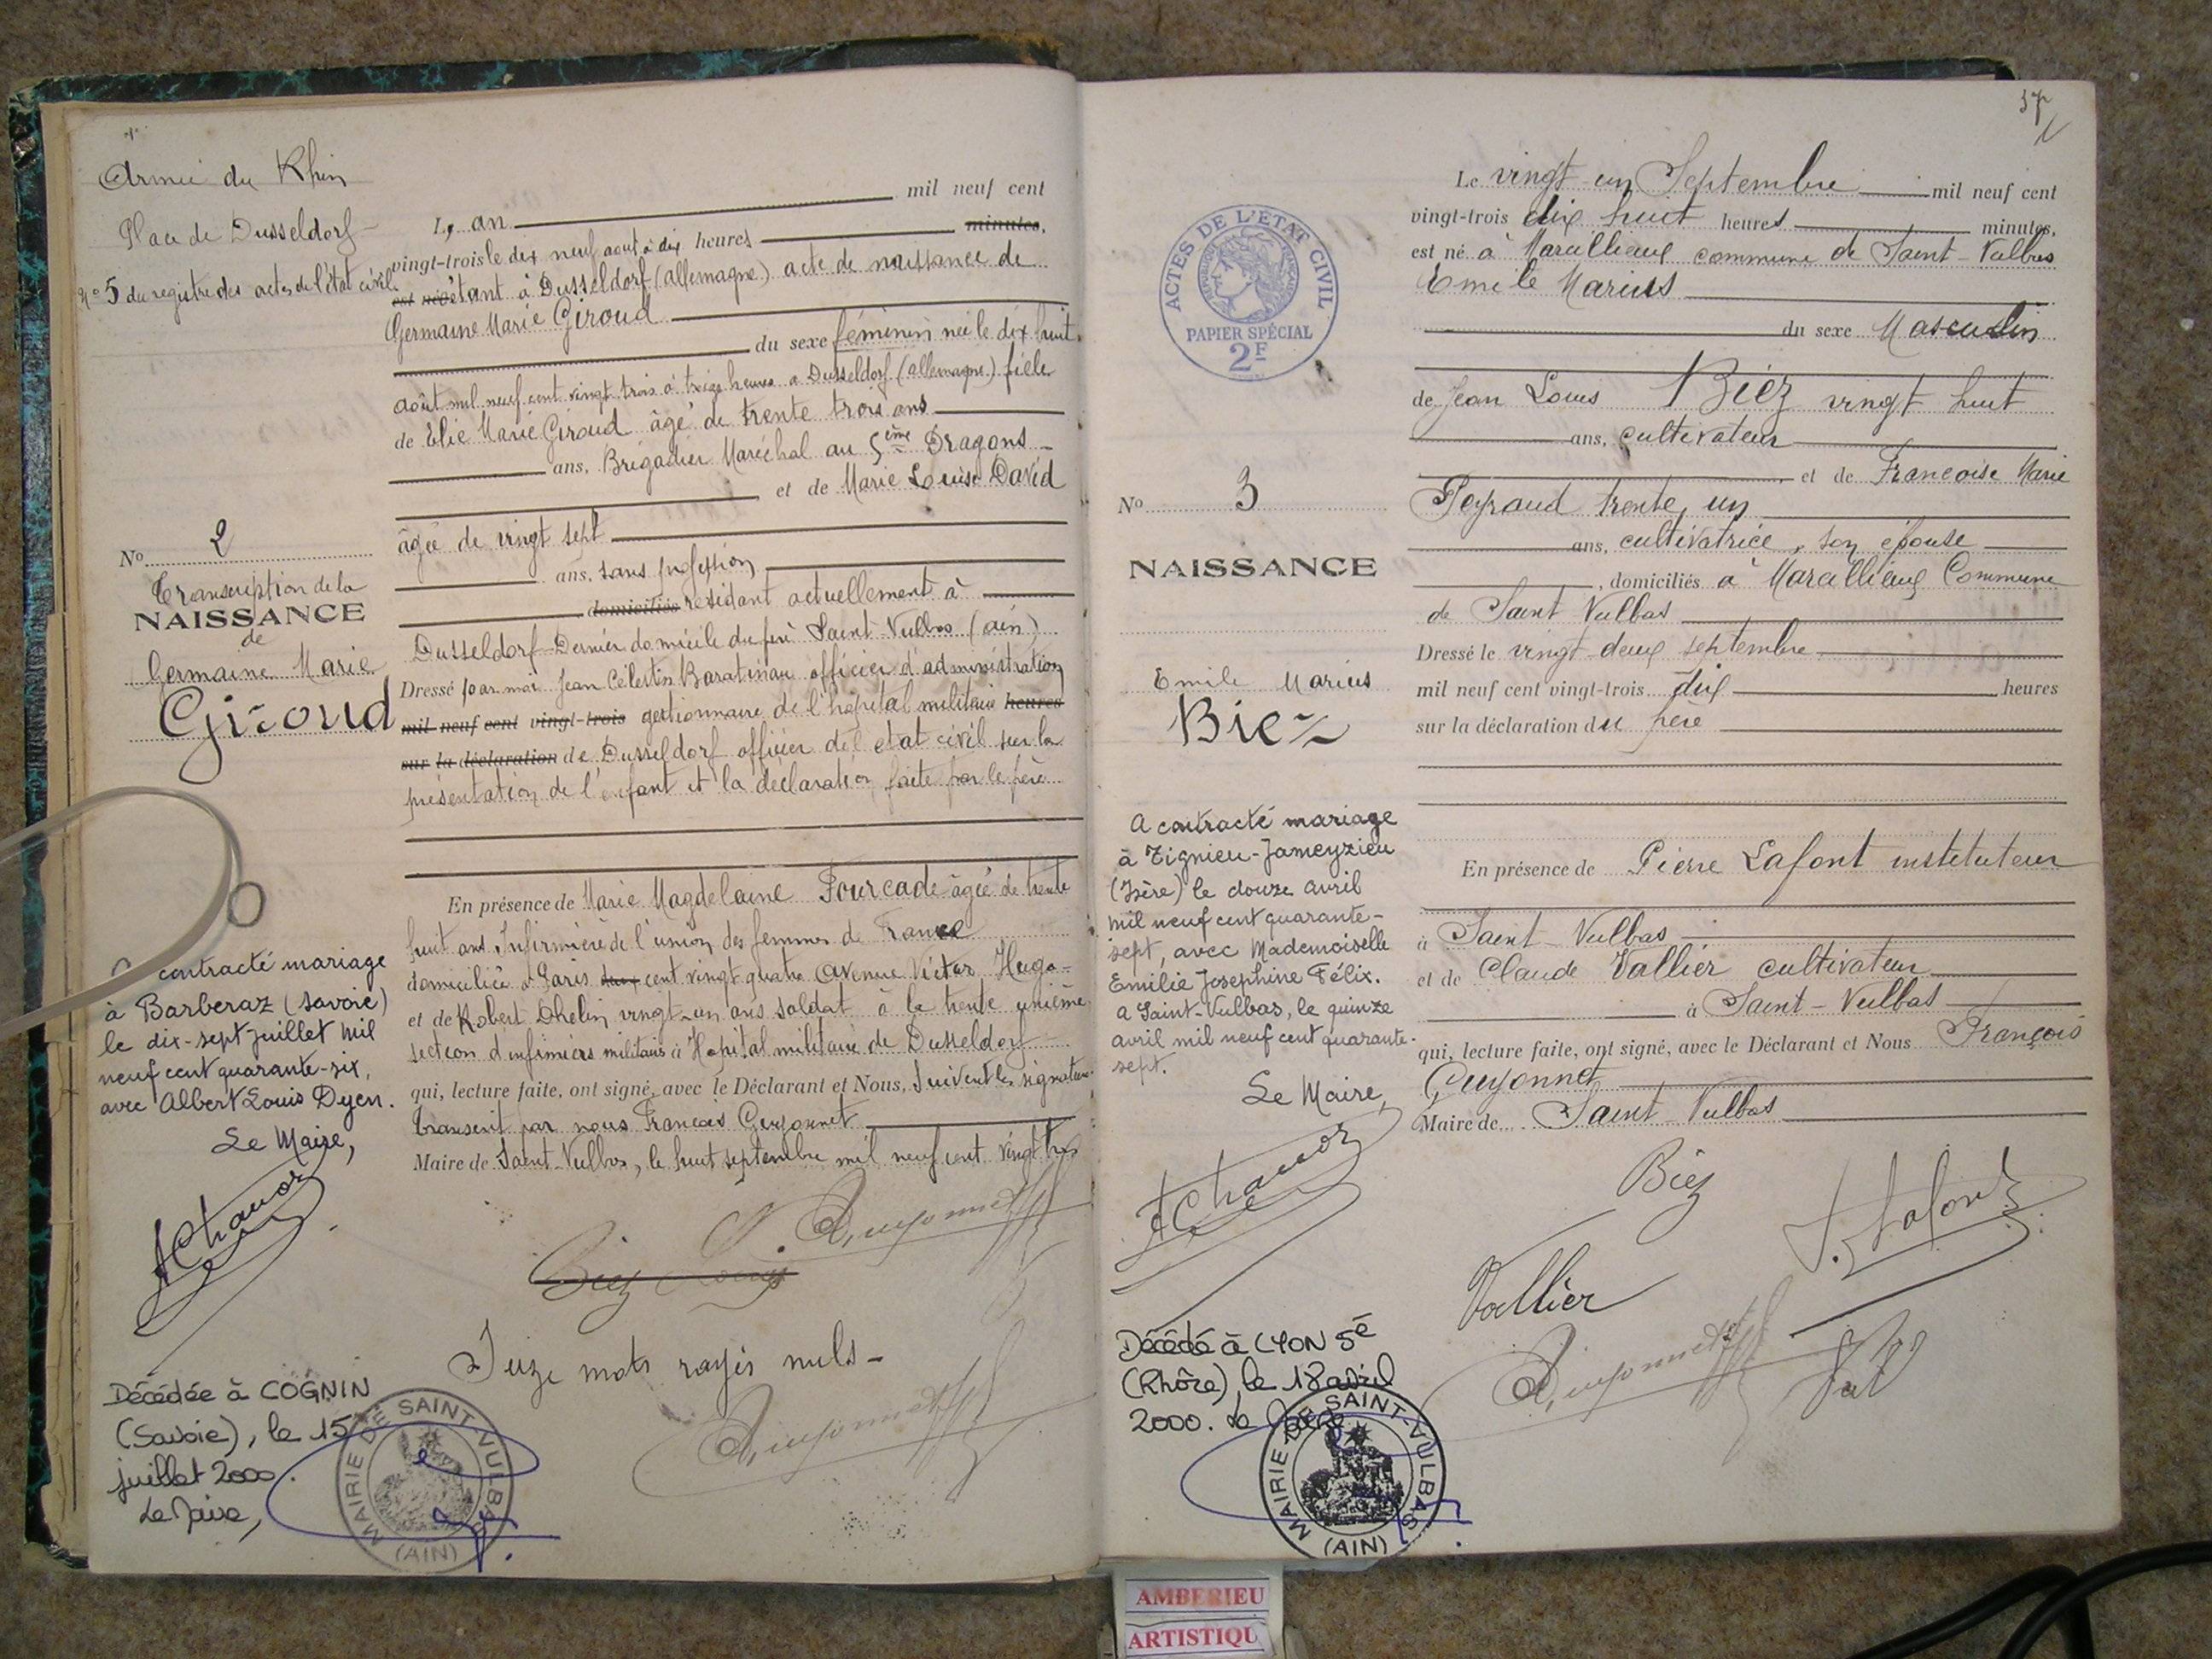 Armée du Rhin
Place de Dusseldorf
N° 5 du registre des actes de l'état civil
N° 2
Transcription de la
NAISSANCE
de
Germaine Marie
Giroud
contracté mariage
à Barberaz (Savoie)
le dix-sept juillet mil
neuf cent quarante-six,
avec Albert Louis Dyen.
Le Maire,
Décédée à COGNIN
(Savoie), le 15
juillet 2000.
Le Maire,
MAIRIE DE SAINT-VULBAS
(AIN)
L'an mil neuf cent
vingt-trois le dix neuf aout à dix heures minutes,
est née étant à Dusseldorf (allemagne) acte de naissance de
Germaine Marie Giroud
du sexe féminin née le dix huit
août mil neuf cent vingt trois à treize heures a Dusseldorf (allemagne) fille
de Elie Marie Giroud âgé de trente trois ans
ans, Brigadier Maréchal au 5ème Dragons
et de Marie Louise David
âgée de vingt sept
ans, sans profession
domiciliés résidant actuellement à
Dusseldorf - Dernier domicile du père Saint-Vulbas (ain)
Dressé par moi Jean Célestin Baratinau officier d'administration
mil neuf cent vingt-trois gestionnaire de l'hôpital militaire heures
sur la déclaration de Dusseldorf officier de l'etat civil sur la
présentation de l'enfant et la déclaration faite par le père
En présence de Marie Magdelaine Fourcade âgée de trente
huit ans Infirmière de l'union des femmes de France
domiciliée à Paris cent vingt quatre Avenue Victor Hugo
et de Robert Dhelin vingt-un ans soldat à la trente unième
section d'infirmiers militaires à Hopital militaire de Dusseldorf
qui, lecture faite, ont signé, avec le Déclarant et Nous, Suivent les signatures
transcrit par nous François Guyonnet
Maire de Saint-Vulbas, le huit septembre mil neuf cent vingt trois
Guyonnet
Biez Louis
Seize mots rayés nuls
Guyonnet
37
ACTES DE L'ETAT CIVIL
RÉPUBLIQUE FRANÇAISE
PAPIER SPÉCIAL
2F
N° 3
NAISSANCE
Emile Marius
Biez
A contracté mariage
à Tignieu-Jameyzieu
(Isère) le douze avril
mil neuf cent quarante-
sept, avec Mademoiselle
Emilie Josephine Félix.
a Saint-Vulbas, le quinze
avril mil neuf cent quarante-
sept.
Le Maire,
Décédé à LYON 5è
(Rhône), le 18 avril
2000. Le Maire
MAIRIE DE SAINT-VULBAS
(AIN)
Le vingt-un Septembre mil neuf cent
vingt-trois dix huit heures minutes,
est né à Marcillieux commune de Saint-Vulbas
Emile Marius
du sexe Masculin
de Jean Louis Biez vingt huit
ans, cultivateur
et de Francoise Marie
Peyraud trente un
ans, cultivatrice, son épouse
, domiciliés à Marcillieux Commune
de Saint Vulbas
Dressé le vingt-deux septembre
mil neuf cent vingt-trois dix heures
sur la déclaration du père
En présence de Pierre Lafont instituteur
à Saint-Vulbas
et de Claude Vallier cultivateur
à Saint-Vulbas
qui, lecture faite, ont signé, avec le Déclarant et Nous François
Guyonnet
Maire de Saint Vulbas
Biez
Lafont
Vallier
Guyonnet
AMBERIEU
ARTISTIQU